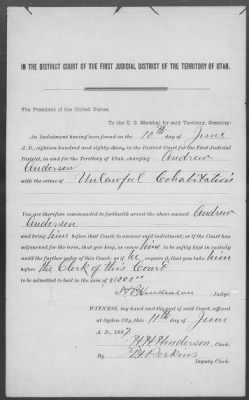 IN THE DISTRICT COURT OF THE FIRST JUDICIAL DISTRICT OF THE TERRITORY OF UTAH.
The President of the United States
To the U. S. Marshal for said Territory, Greeting:
An Indictment having been found on the 10th day of June
A. D., eighteen hundred and eighty- in the District Court for the First Judicial
District, in and for the Territory of Utah, charging Andrew
Anderson
with the crime of Unlawful Cohabitation
You are therefore commanded to forthwith arrest the above named Andrew
Anderson
and bring him before that Court to answer said indictment; or if the Court has
adjourned for the term, that you keep, or cause him to be safely kept in custody
until the further order of this Court; or if he require it, that you take him
before the Clerk of this Court
to be admitted to bail in the sum of
H. P. Henderson, Judge.
WITNESS, my hand and the seal of said Court, affixed
at Ogden City, this 11th day of June
A. D., 1887
H. H. Henderson, Clerk.
By Perkins
Deputy Clerk.